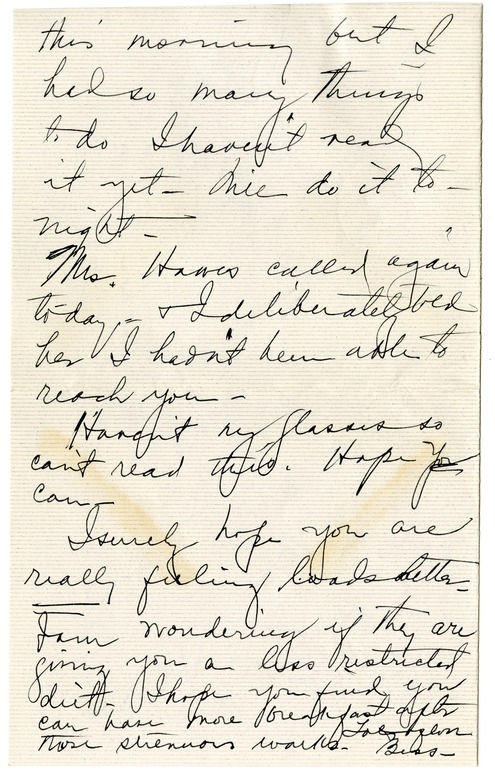 this morning but I
had so many things
to do I haven't read
it yet - Will do it to-
night -
Mrs. Hawes called again
to-day - & I deliberately told
her I hadn't been able to
reach you -
Haven't my glasses so
can't read this. Hope you
can -
I surely hope you are
really feeling loads better -
I am wondering if they are
giving you a less restricted
diet - I hope you find you
can have more breakfast after
those strenuous works -
Bess -